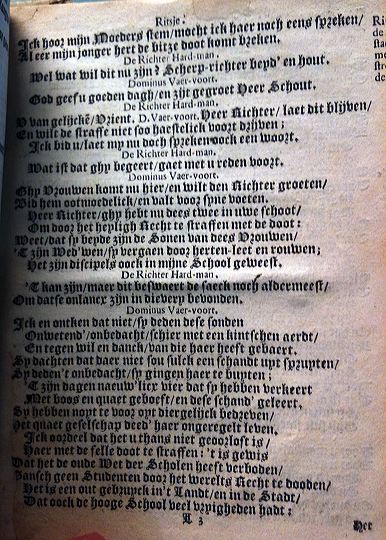 Ritsje.
Ick hoor mijn Moeders stem/mocht ick haer noch eens spzeken/
Al eer mijn jonger hert de bitze doot komt bzeken.
De Richter Hard-man.
Wel wat wil dit nu zijn? Scherp-richter beyd' en hout.
Dominus Vaer-voort.
God geef u goeden dagh/en zijt gegroet Heer Schout.
De Richter Hard-man.
V van gelijcke/Vzient. D. Vaer-voort. Heer Richter/laet dit blijven/
En wilt de straffe niet soo haestelick voozt dzijven;
Ick bid u/laet my nu doch spzeken oock een woozt.
De Richter Hard-man.
Wat ist dat ghy begeert/gaet met u reden voozt.
Dominus Vaer-voort.
Ghy Vzouwen komt nu hier/en wilt den Richter groeten/
Bid hem ootmoedelick/en valt vooz syne voeten.
Heer Richter/ghy hebt nu dees twee in uwe schoot/
Om dooz het heyligh Recht te straffen met de doot:
Weet/dat sy beyde zijn de Sonen van dees Vzouwen/
'T zijn Wed'wen/sy vergaen dooz herten-leet en rouwen;
Het zijn discipels oock in mijne School geweest.
De Richter Hard-man.
'T kan zijn/maer dit beswaert de saeck noch aldermeest/
Om datse onlancx zijn in dievery bevonden.
Dominus Vaer-voort.
Ick en ontken dat niet/sy deden dese sonden
Onwetend'/onbedacht/schier met een kintschen aerdt/
En tegen wil en danck/van die haer heeft gebaert.
Sy dachten dat daer niet sou sulck een schandt upt spzupten/
Sy deden't onbedacht/sy gingen haer te bupten:
'T zijn dagen naeuw'lier vier dat sy hebben verkeert
Met boos en quaet geboeft/en dese schand' geleert.
Sy hebben noyt te vooz opt diergelijck bedzeven/
Het quaet geselschap deed' haer ongeregelt leven.
Ick oozdeel dat het u thans niet geoozloft is/
Haer met de felle doot te straffen: 't is gewis
Dat het de oude Wet der Scholen heeft verboden/
Gansch geen Studenten dooz het werelts Recht te dooden/
Het is een out gebzupck in't Landt/en in de Stadt/
Dat oock de hooge School veel vzyigheden hadt:
A 3
Het